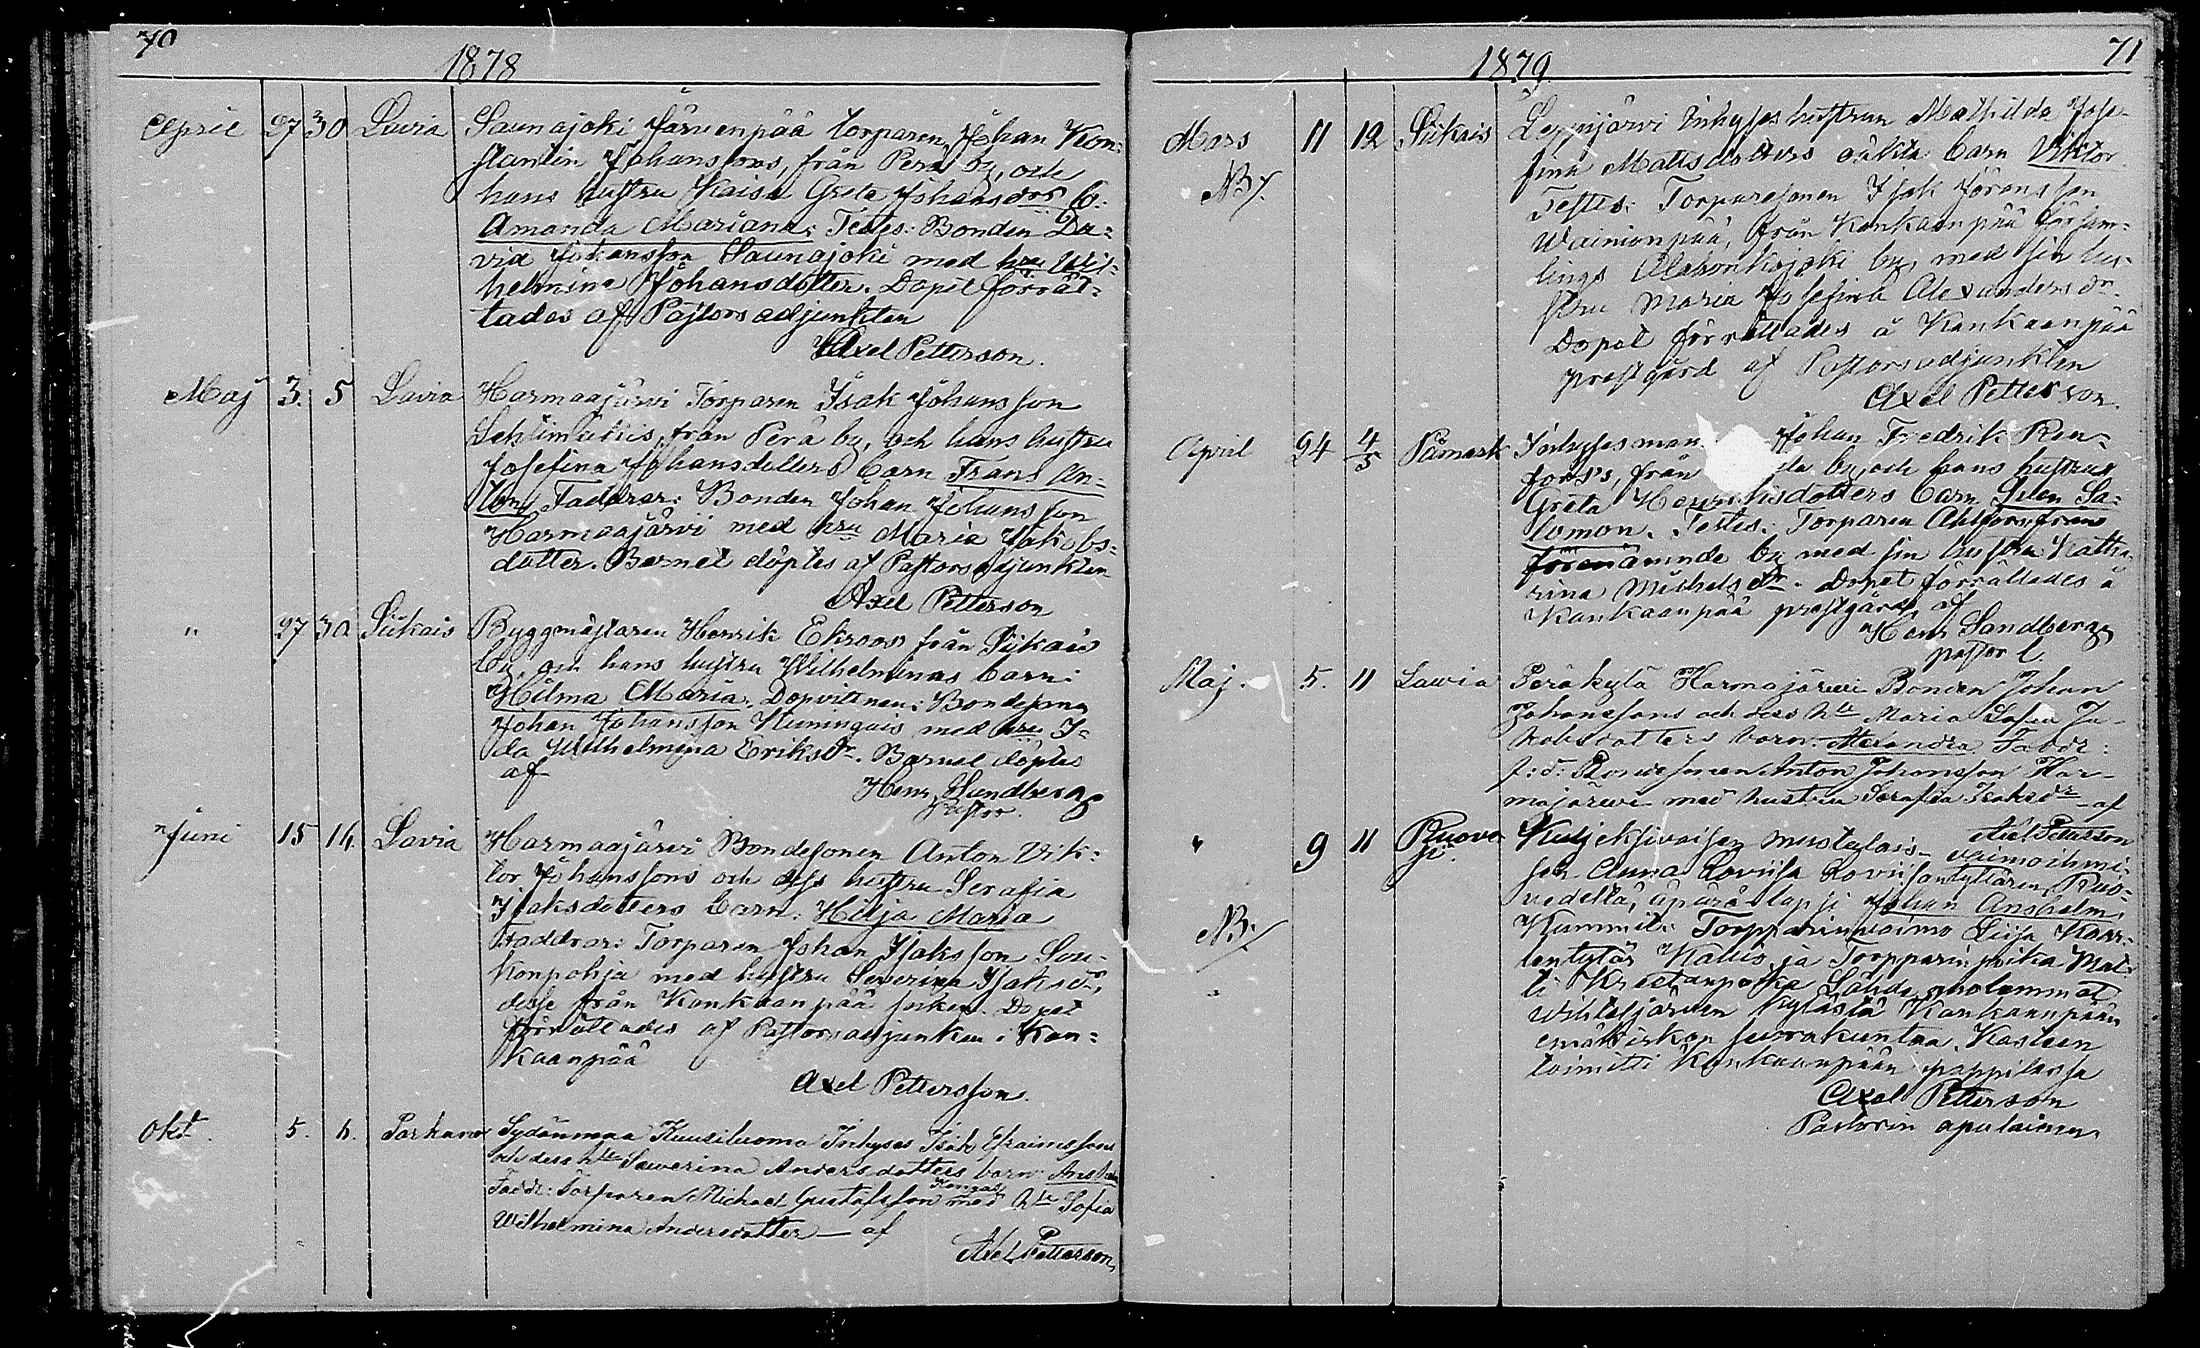 70
1878
April 27 30 Lavia Saunajoki Järvenpää torparen Johan Kon=
stantin Johanssons, från Perä by, och
hans hustru Kaisa Greta Johansdrs b.
Amanda Mariana. Testes: Bonden Da=
vid Johansson Saunajoki med hru Wil=
helmina Johansdotter. Dopet förrät=
tades af Pastorsadjunkten
Axel Petterson.
Maj 3. 5 Lavia Harmaajärvi Torparen Isak Johansson
från Perä by, och hans hustru
Josefina Johansdotters barn Frans An=
ton, Faddrar: Bonden Johan Johansson
Harmaajärvi med hru Maria Jakobs=
dotter. Barnet döptes af Pastorsadjunkten
Axel Petterson
" 27 30. Siikais Byggmästaren Henrik Ekroos från Siikais
by och hans hustru Wilhelminas barn:
Hilma Maria. Dopvittnen: Bondesonen
Johan Johansson med hru I=
da Wilhelmina Eriksdr. Barnet döptes
af
Henr. Sandberg
Pastor.
Juni 15 16. Lavia Harmaajärvi Bondesonen Anton Vik=
tor Johanssons och dess hustru Serafia
Isaksdotters barn. Hilja Maria
Faddrar: Torparen Johan Isaksson
med hustru Severina Isaksdr,
desse från Kankaanpää socken. Dopet
förrättades af Pastorsadjunkten i Kan=
kaanpää
Axel Pettersson.
Okt. 5. 6. Parkano Sydänmaa Kuusiluoma Inhyses Isak Efraimssons
och dess hu Sawerina Andersdotters barn:
Fadd: Torparen Michael Gustafsson med hu Sofia
Wilhelmina Andersdotter — af
Axel Petterson,
71
1879.
Mars 11 12 Siikais Leppijärvi Inhyses hustrun Mathilda Jose=
NB/. fina Mattsdotters oäkta barn Viktor
Testes: Torparesonen Isak Jöransson
Wainionpää, från Kankaanpää försam=
lings Alahonkajoki by, med sin hu=
stru Maria Josefina Alexandersdr.
Dopet förrättades å Kankaanpää
prestgård af Pastorsadjunkten
Axel Petterson.
April 24 4/5 Påmark Inhysesman Johan Fredrik Ren=
fors's, från by och hans hustrus
Greta Henriksdotters barn
lomon. Testes: Torparen Ahlfors från
förenämnde by med sin hustru Katha=
rina Michelsdr. Dopet förrättades å
Kankaanpää prestgård af
Henr Sandberg
pastor l.
Maj. 5. 11 Lawia Peräkylä Harmajärwi Bonden Johan
Johanssons och dess hu Maria Sofia Ja-
kobsdotters barn: Alexandra. Faddr:
Bondesonen Anton Johansson Har-
majärwi med hustru Serafia Isaksdr — af
Axel Petterson
" 9 11 Ruovesi. mustalais- vaimoihmi-
NB/ sen Anna Loviisa Loviisantyttären, Ruo=
vedeltä, äpärä lapsi Johan Anshelm.
Kummit: Torpparinvaimo Liisa Kaar=
lentytär ja Torpparin poika Mat=
ti Kristianpoika molemmat
kylästä Kankaanpään
emäkirkon seurakuntaa. Kasteen
toimitti Kankaanpään pappilassa
Axel Petterson
Pastorin apulainen.